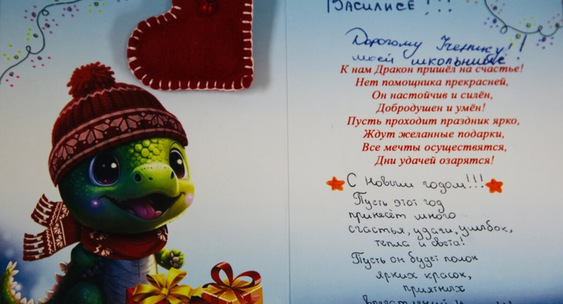 ВАСИЛИСЕ!!!
Дорогому Ученику!!
моей школьнице
К нам Дракон пришёл на счастье!
Нет помощника прекрасней,
Он настойчив и силён,
Добродушен и умён!
Пусть проходит праздник ярко,
Ждут желанные подарки,
Все мечты осуществятся,
Дни удачей озарятся!
С Новым годом!!!
Пусть этот год
принесёт много
счастья, удачи, улыбок,
тепла и света!
Пусть он будет полон
ярких красок,
приятных
впечатлений